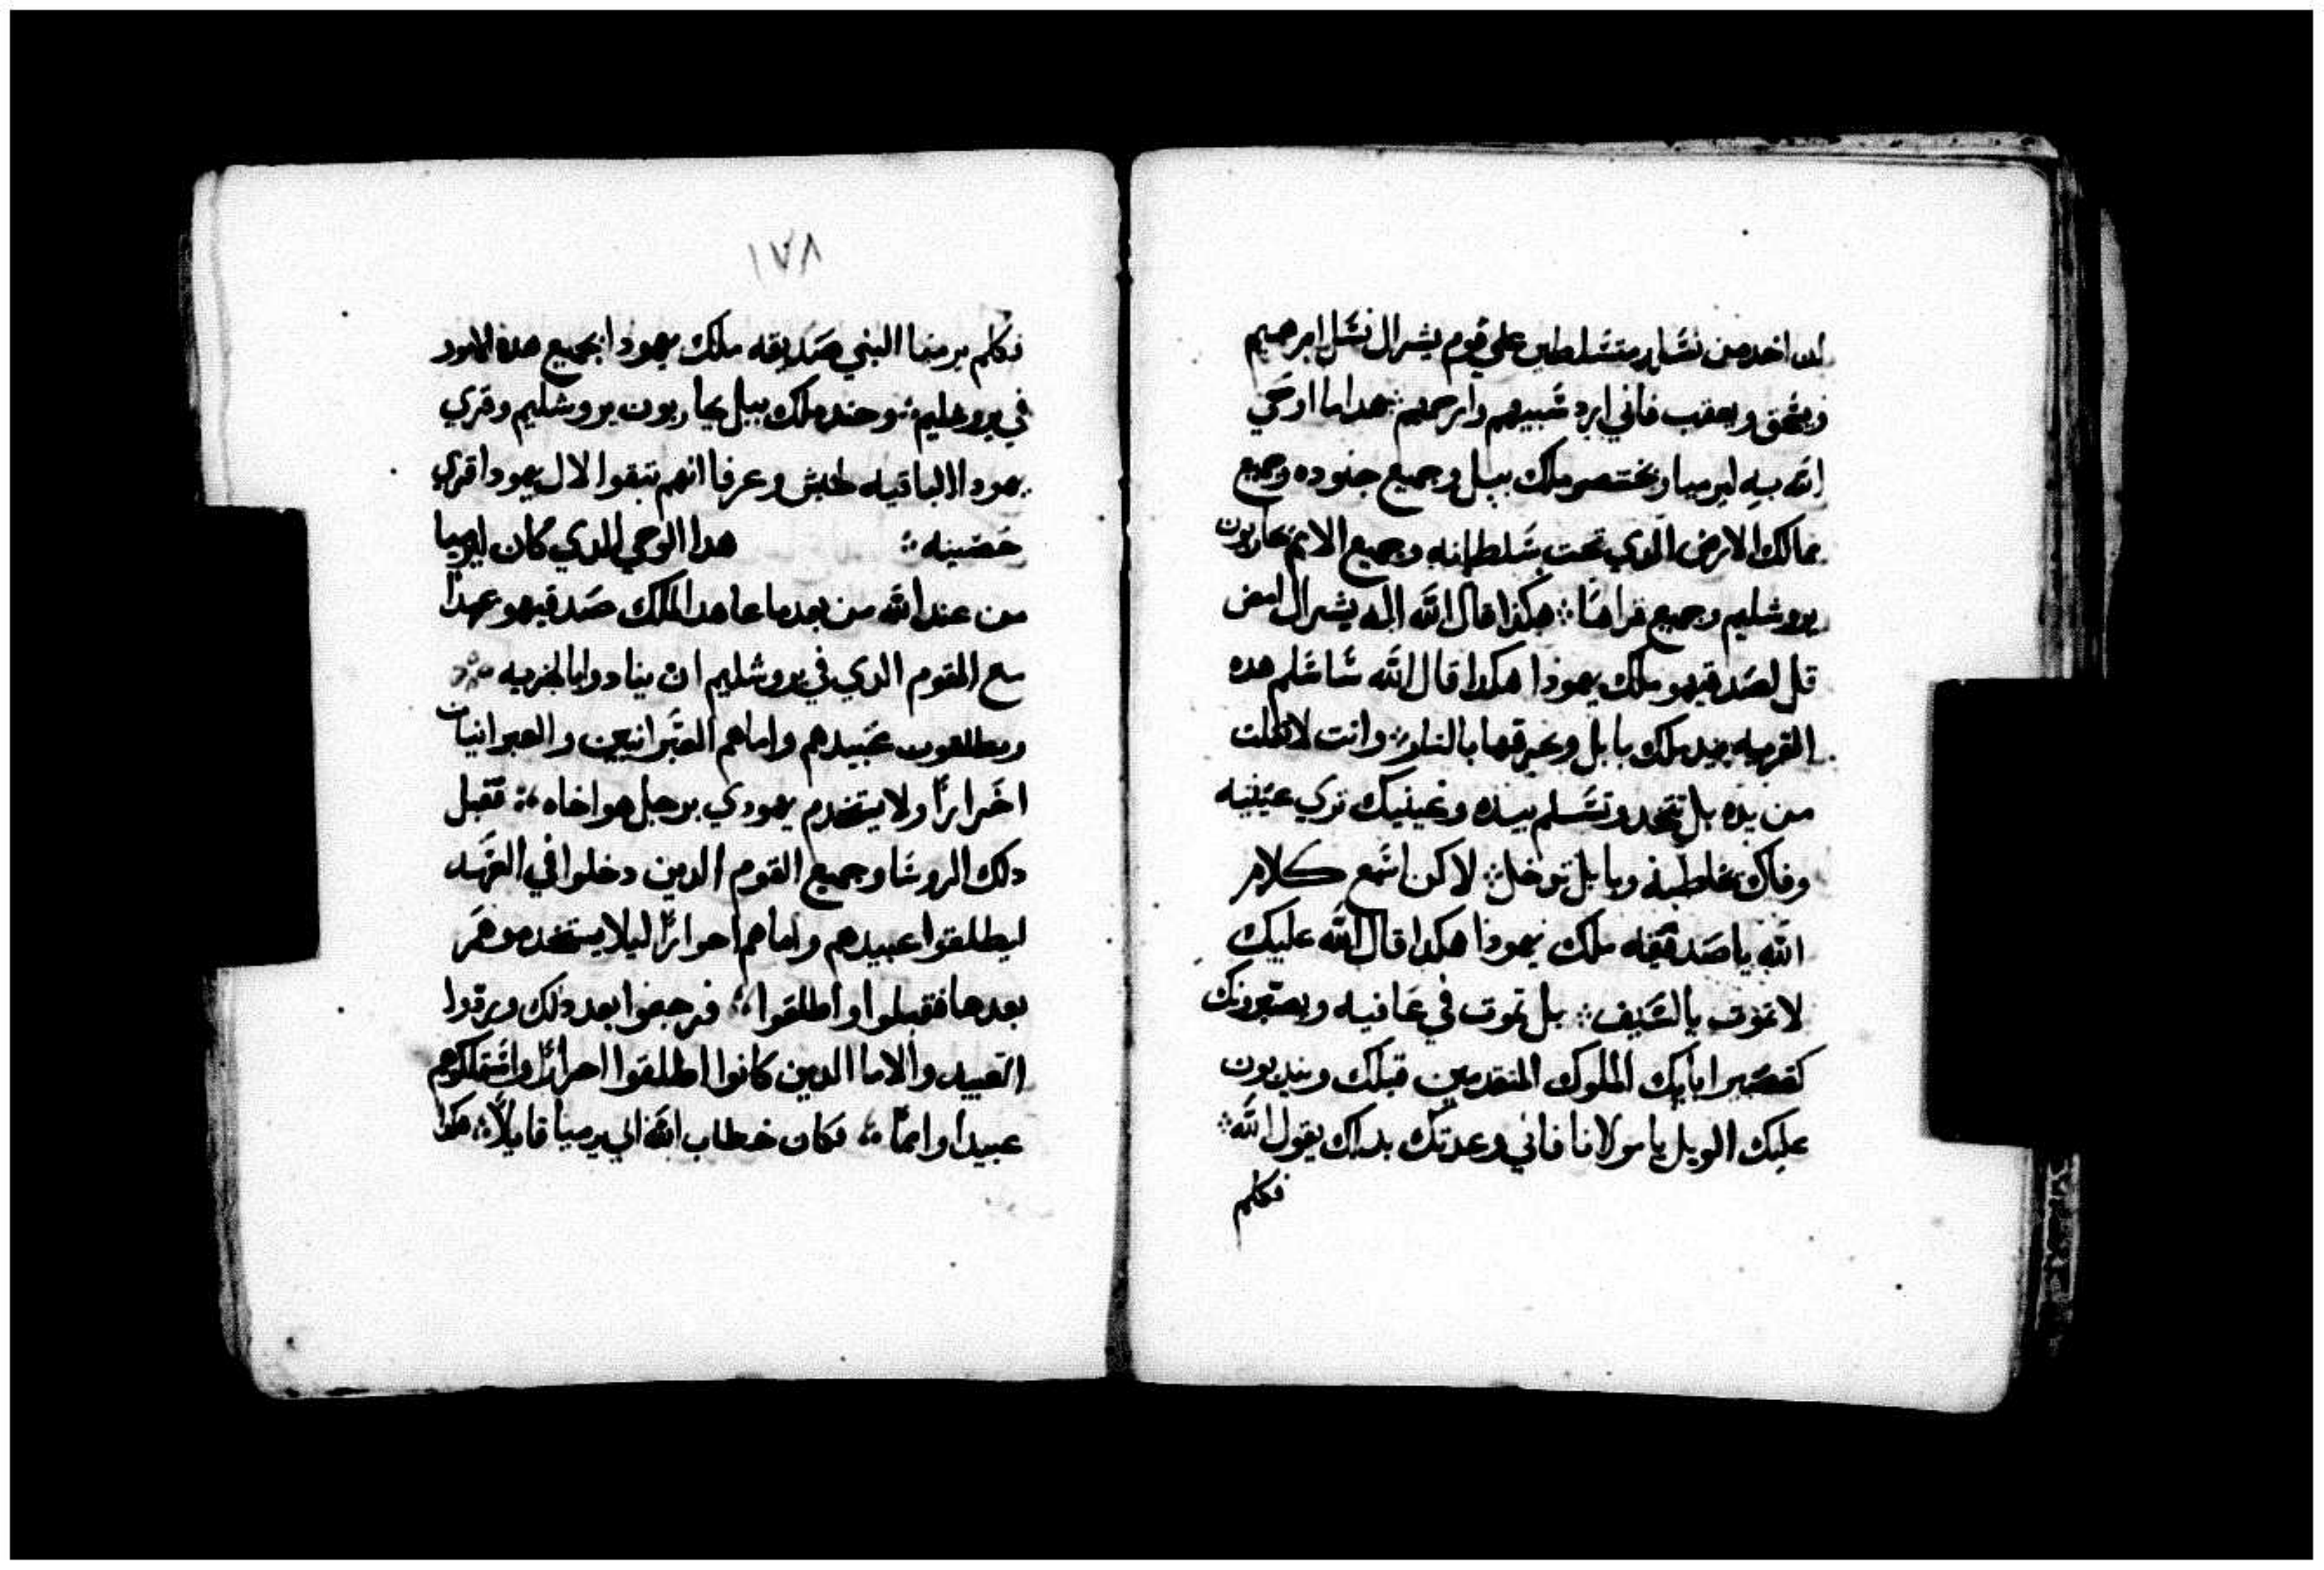 لان اخد من نسله متسلطين علي قوم يشرال نسل ابرهيم
ويسحق ويعقب فاني ارد سبيهم وارحمهم هدا ما اوحي
الله به ليرميا وبختنصر ملك ببل وجميع جنوده وجميع
ممالك الارض الدي تحت سلطانه وجميع الامم يحاربون
يروشليم وجميع قراها هكذا قال الله اله يشرال امض
قل لصدقيهو ملك يهودا هكدا قال الله ساسلم هده
القريه بيد ملك بابل ويحرقها بالنار وانت لا تفلت
من يده بل تتخد وتسلم بيده وعينيك تري عينيه
وفاك يخاطبه وبابل توخل لاكن اسمع كلام
الله يا صدقيه ملك يهودا هكدا قال الله عليك
لا تموت بالسيف بل تموت في عافيه ويصتعرونك
كقصير ابايك الملوك المتقدمين قبلك ويندبون
عليك الويل يا مولانا فاني وعدتك بداك يقول الله
فكلم
١٧٨
فكلم يرميا النبي صديقه ملك يهودا بجميع هده الامور
في يروشليم وجند ملك ببل يحاربون يروشليم وقري
يهودا الباقيه لخيش وعزقا انهم تبقوا لال يهودا قري
حصينه هدا الوحي الدي كان ليرميا
من عند الله من بعد ما عاهد الملك صدقيهو عهدا
مع القوم الدي في يروشليم ان ينادوا بالحريه
ويطلقون عبيدهم واماهم العبرانيين والعبرانيات
احرارا ولا يستخدم يهودي برجل هو اخاه فقبل
دلك الروسا وجميع القوم الدين دخلوا في العهد
ليطلقوا عبيدهم واماهم احرارا ليلا يستخدموهم
بعدها فقبلوا واطلقوا فرجعوا بعد دلك وردوا
العبيد والاما الدين كانوا اطلقوا احرارا واستملكوهم
عبيدا واما فكان خطاب الله الي يرميا قايلا هكدا